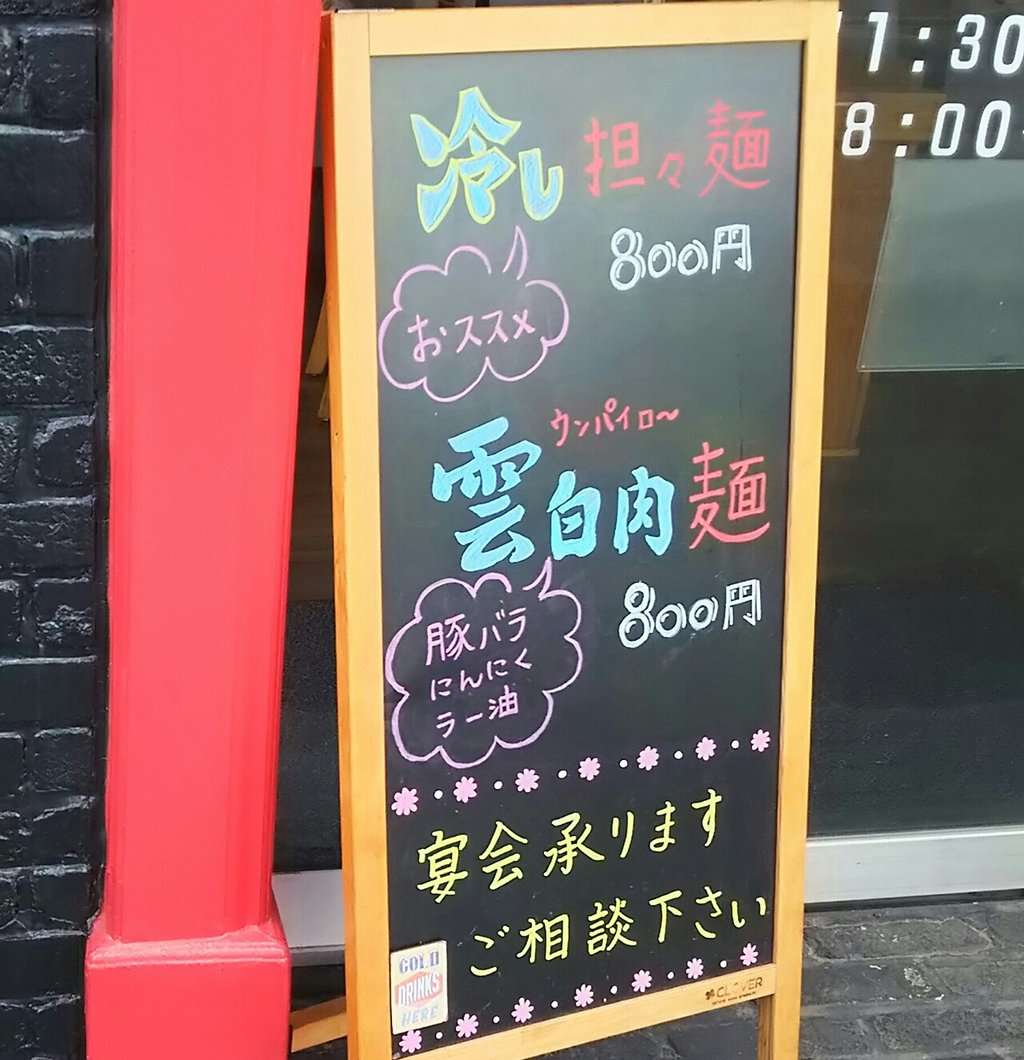 冷し担々麺
800円
おススメ
ウンパイロ〜
雲白肉麺
800円
豚バラ
にんにく
ラー油
宴会承ります
ご相談下さい
COLD
DRINKS
HERE
CLOVER
1:30
8:00